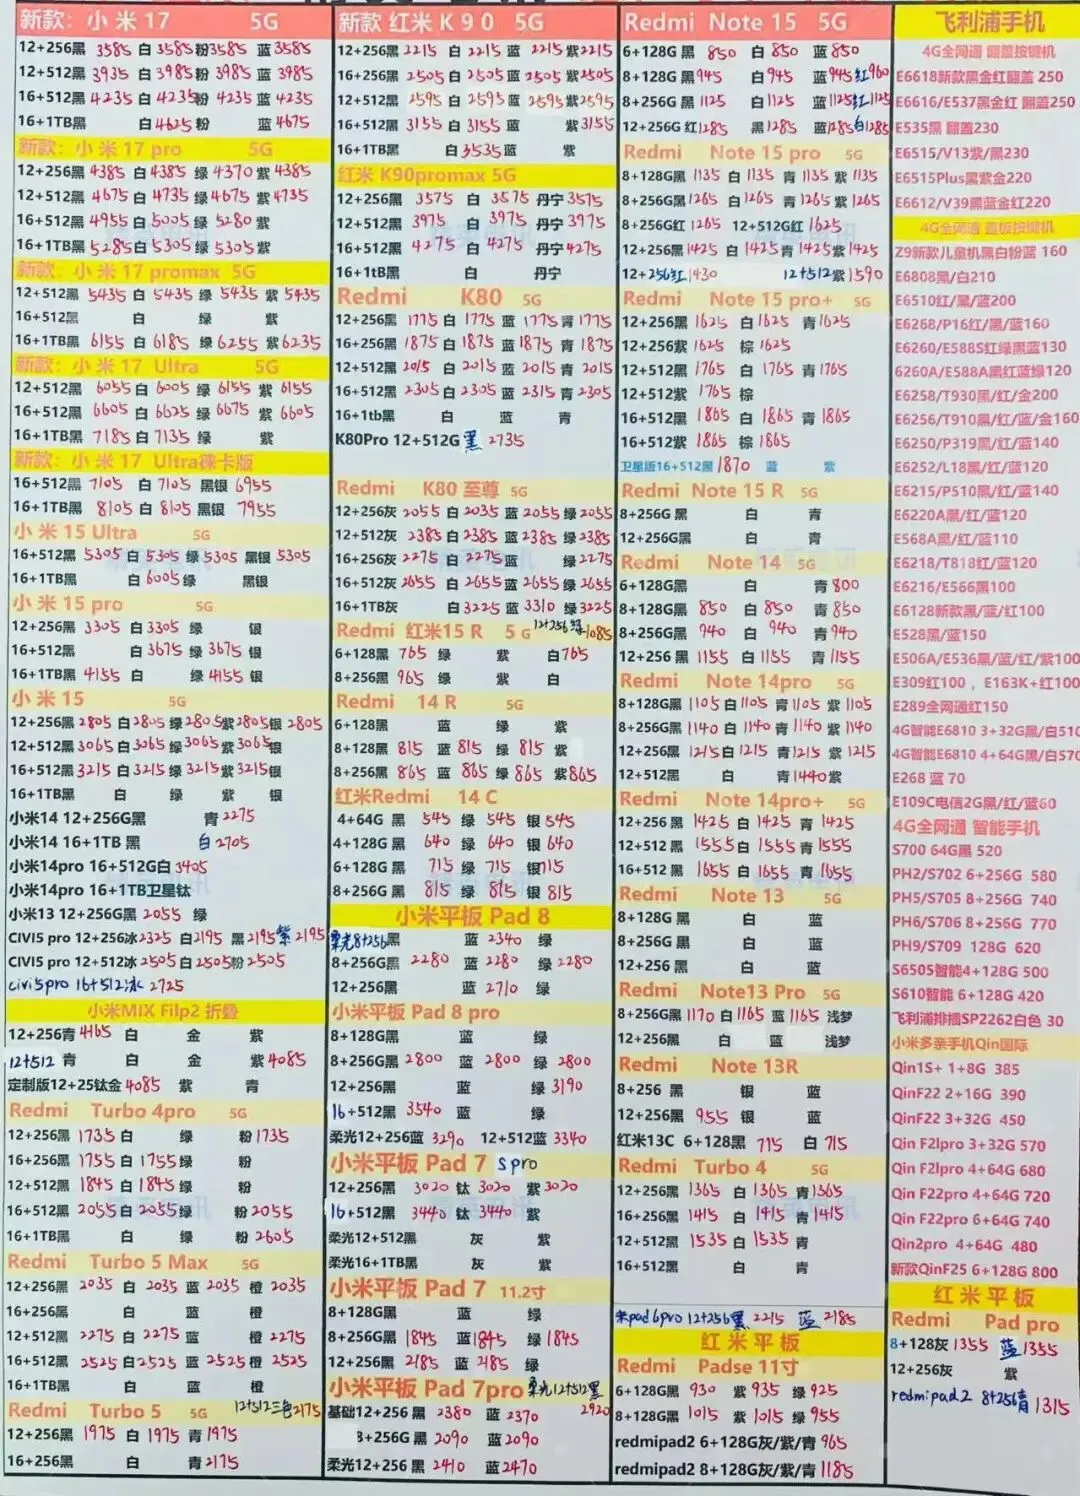 新款：小 米 17 5G
12+256黑 3585 白 3585 粉 3585 蓝 3585
12+512黑 3935 白 3985 粉 3985 蓝 3985
16+512黑 4235 白 4235 粉 4235 蓝 4235
16+1TB黑 白 4625 粉 蓝 4675
新款：小 米 17 pro 5G
12+256黑 4385 白 4385 绿 4370 紫 4385
12+512黑 4675 白 4735 绿 4675 紫 4735
16+512黑 4955 白 5005 绿 5280 紫
16+1TB黑 5285 白 5305 绿 5305 紫
新款：小 米 17 promax 5G
12+512黑 5435 白 5435 绿 5435 紫 5435
16+512黑 白 绿 紫
16+1TB黑 6155 白 6185 绿 6255 紫 6235
新款：小 米 17 Ultra 5G
12+512黑 6055 白 6005 绿 6155 紫 6155
16+512黑 6605 白 6625 绿 6675 紫 6605
16+1TB黑 7185 白 7135 绿 紫
新款：小 米 17 Ultra徕卡版
16+512黑 7105 白 7105 黑银 6955
16+1TB黑 8105 白 8105 黑银 7955
小 米 15 Ultra 5G
16+512黑 5305 白 5305 绿 5305 黑银 5305
16+1TB黑 白 6005 绿 黑银
小 米 15 pro 5G
12+256黑 3305 白 3305 绿 银
16+512黑 白 3675 绿 3675 银
16+1TB黑 4155 白 绿 4155 银
小 米 15 5G
12+256黑 2805 白 2805 绿 2805 紫 2805 银 2805
12+512黑 3065 白 3065 绿 3065 紫 3065 银
16+512黑 3215 白 3215 绿 3215 紫 3215 银
16+1TB黑 白 绿 紫 银
小米14 12+256G黑 青 2275
小米14 16+1TB 黑 白 2705
小米14pro 16+512G白 3405
小米14pro 16+1TB卫星钛
小米13 12+256G黑 2055 绿
CIVI5 pro 12+256冰 2325 白 2195 黑 2195 紫 2195
CIVI5 pro 12+512冰 2505 白 2505 粉 2505
civi5pro 16+512冰 2725
小米MIX Filp2 折叠
12+256青 4165 白 金 紫
12+512 青 白 金 紫 4085
定制版12+25钛金 4085 紫 青
Redmi Turbo 4pro 5G
12+256黑 1735 白 绿 粉 1735
16+256黑 1755 白 1755 绿 粉
12+512黑 1845 白 1845 绿 粉
16+512黑 2055 白 2055 绿 粉 2055
16+1TB黑 白 绿 粉 2605
Redmi Turbo 5 Max 5G
12+256黑 2035 白 2035 蓝 2035 橙 2035
16+256黑 白 蓝 橙
12+512黑 2275 白 2275 蓝 橙 2275
16+512黑 2525 白 2525 蓝 2525 橙 2525
16+1TB黑 白 蓝 橙
Redmi Turbo 5 5G 12+512三色 2175
12+256黑 1975 白 1975 青 1975
16+256黑 白 青 2175
新款 红米 K 9 0 5G
12+256黑 2215 白 2215 蓝 2215 紫 2215
16+256黑 2505 白 2505 蓝 2505 紫 2505
12+512黑 2595 白 2595 蓝 2595 紫 2595
16+512黑 3155 白 3155 蓝 紫 3155
16+1TB黑 白 3535 蓝 紫
红米 K90promax 5G
12+256黑 3575 白 3575 丹宁 3575
12+512黑 3975 白 3975 丹宁 3975
16+512黑 4275 白 4275 丹宁 4275
16+1tB黑 白 丹宁
Redmi K80 5G
12+256黑 1775 白 1775 蓝 1775 青 1775
16+256黑 1875 白 1875 蓝 1875 青 1875
12+512黑 2015 白 2015 蓝 2015 青 2015
16+512黑 2305 白 2305 蓝 2315 青 2305
16+1tb黑 白 蓝 青
K80Pro 12+512G 黑 2735
Redmi K80 至尊 5G
12+256灰 2055 白 2035 蓝 2055 绿 2055
12+512灰 2385 白 2385 蓝 2385 绿 2385
16+256灰 2275 白 2275 蓝 绿 2275
16+512灰 2655 白 2655 蓝 2655 绿 2655
16+1TB灰 白 3225 蓝 3310 绿 3225
Redmi 红米15 R 5 G 12+256绿 1085
6+128黑 765 绿 紫 白 765
8+256黑 965 绿 紫 白
Redmi 14 R 5G
6+128黑 蓝 绿 紫
8+128黑 815 蓝 815 绿 815 紫
8+256黑 865 蓝 865 绿 865 紫 865
红米Redmi 14 C
4+64G 黑 545 绿 545 银 545
4+128G 黑 640 绿 640 银 640
6+128G 黑 715 绿 715 银 715
8+256G 黑 815 绿 815 银 815
小米平板 Pad 8
柔光8+256黑 蓝 2340 绿
8+256G黑 2280 蓝 2280 绿 2280
12+256黑 蓝 2710 绿
小米平板 Pad 8 pro
8+128G黑 蓝 绿
8+256G黑 2800 蓝 2800 绿 2800
12+256黑 蓝 绿 3190
16+512黑 3540 蓝 绿
柔光12+256蓝 3290 12+512蓝 3340
小米平板 Pad 7 S pro
12+256黑 3020 钛 3020 紫 3020
16+512黑 3440 钛 3440 紫
柔光12+512黑 灰 紫
柔光16+1TB黑 灰 紫
小米平板 Pad 7 11.2寸
8+128G黑 蓝 绿
8+256G黑 1845 蓝 1845 绿 1845
12+256黑 2185 蓝 2185 绿
小米平板 Pad 7pro 柔光12+512黑 2920
基础12+256 黑 2380 蓝 2370
8+256G 黑 2090 蓝 2090
柔光12+256 黑 2410 蓝 2470
Redmi Note 15 5G
6+128G 黑 850 白 850 蓝 850
8+128G 黑 945 白 945 蓝 945 红 960
8+256G 黑 1125 白 1125 蓝 1125 红 1125
12+256G 红 1285 黑 1285 蓝 1285 白 1285
Redmi Note 15 pro 5G
8+128G黑 1135 白 1135 青 1135 紫 1135
8+256G黑 1265 白 1265 青 1265 紫 1265
8+256G红 1265 12+512G红 1625
12+256黑 1425 白 1425 青 1425 紫 1425
12+256红 1430 12+512紫 1590
Redmi Note 15 pro+ 5G
12+256黑 1625 白 1625 青 1625
12+256紫 1625 棕 1625
12+512黑 1765 白 1765 青 1765
12+512紫 1765 棕
16+512黑 1865 白 1865 青 1865
16+512紫 1865 棕 1865
卫星版16+512黑 1870 蓝 紫
Redmi Note 15 R 5G
8+256G黑 白 青
12+256G黑 白 青
Redmi Note 14 5G
6+128G黑 白 青 800
8+128G黑 850 白 850 青 850
8+256G黑 940 白 940 青 940
12+256 黑 1155 白 1155 青 1155
Redmi Note 14pro 5G
8+128G黑 1105 白 1105 青 1105 紫 1105
8+256G黑 1140 白 1140 青 1140 紫 1140
12+256黑 1215 白 1215 青 1215 紫 1215
12+512黑 白 青 1440 紫
Redmi Note 14pro+ 5G
12+256 黑 1425 白 1425 青 1425
12+512 黑 1555 白 1555 青 1555
16+512 黑 1655 白 1655 青 1655
Redmi Note 13
8+128G 黑 白 蓝
8+256G 黑 白 蓝
12+256 黑 白 蓝
Redmi Note13 Pro 5G
8+256G黑 1170 白 1165 蓝 1165 浅梦
12+256黑 白 蓝 浅梦
Redmi Note 13R
8+256 黑 银 蓝
12+256黑 955 银 蓝
红米13C 6+128黑 715 白 715
Redmi Turbo 4 5G
12+256黑 1365 白 1365 青 1365
16+256黑 1415 白 1415 青 1415
12+512黑 1535 白 1535 青
16+512黑 白 青
米pad 6pro 12+256黑 2215 蓝 2185
红 米 平 板
Redmi Padse 11寸
6+128G黑 930 紫 935 绿 925
8+128G黑 1015 紫 1015 绿 955
redmipad2 6+128G灰/紫/青 965
redmipad2 8+128G灰/紫/青 1185
飞利浦手机
4G全网通 翻盖按键机
E6618新款黑金红翻盖 250
E6616/E537黑金红 翻盖250
E535黑 翻盖230
E6515/V13紫/黑230
E6515Plus黑紫金220
E6612/V39黑蓝金红220
4G全网通 直板按键机
Z9新款儿童机黑白粉蓝 160
E6808黑/白210
E6510红/黑/蓝200
E6268/P16红/黑/蓝160
E6260/E588S红绿黑蓝130
6260A/E588A黑红蓝绿120
E6258/T930黑/红/金200
E6256/T910黑/红/蓝/金160
E6250/P319黑/红/蓝140
E6252/L18黑/红/蓝120
E6215/P510黑/红/蓝140
E6220A黑/红/蓝120
E568A黑/红/蓝110
E6218/T818红/蓝120
E6216/E566黑100
E6128新款黑/蓝/红100
E528黑/蓝150
E506A/E536黑/蓝/红/紫100
E309红100，E163K+红100
E289全网通红150
4G智能E6810 3+32G黑/白510
4G智能E6810 4+64G黑/白570
E268 蓝 70
E109C电信2G黑/红/蓝60
4G全网通 智能手机
S700 64G黑 520
PH2/S702 6+256G 580
PH5/S705 8+256G 740
PH6/S706 8+256G 770
PH9/S709 128G 620
S6505智能4+128G 500
S610智能 6+128G 420
飞利浦排插SP2262白色 30
小米多亲手机Qin国际
Qin1S+ 1+8G 385
QinF22 2+16G 390
QinF22 3+32G 450
Qin F2lpro 3+32G 570
Qin F2lpro 4+64G 680
Qin F22pro 4+64G 720
Qin F22pro 6+64G 740
Qin2pro 4+64G 480
新款QinF25 6+128G 800
红 米 平 板
Redmi Pad pro
8+128灰 1355 蓝 1355
12+256灰 紫
redmipad2 8+256青 1315